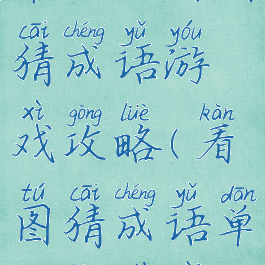 cāi chéng yǔ yóu
猜成语游
xì gōng lüè kàn
戏攻略(看
tú cāi chéng yǔ dān
图猜成语单